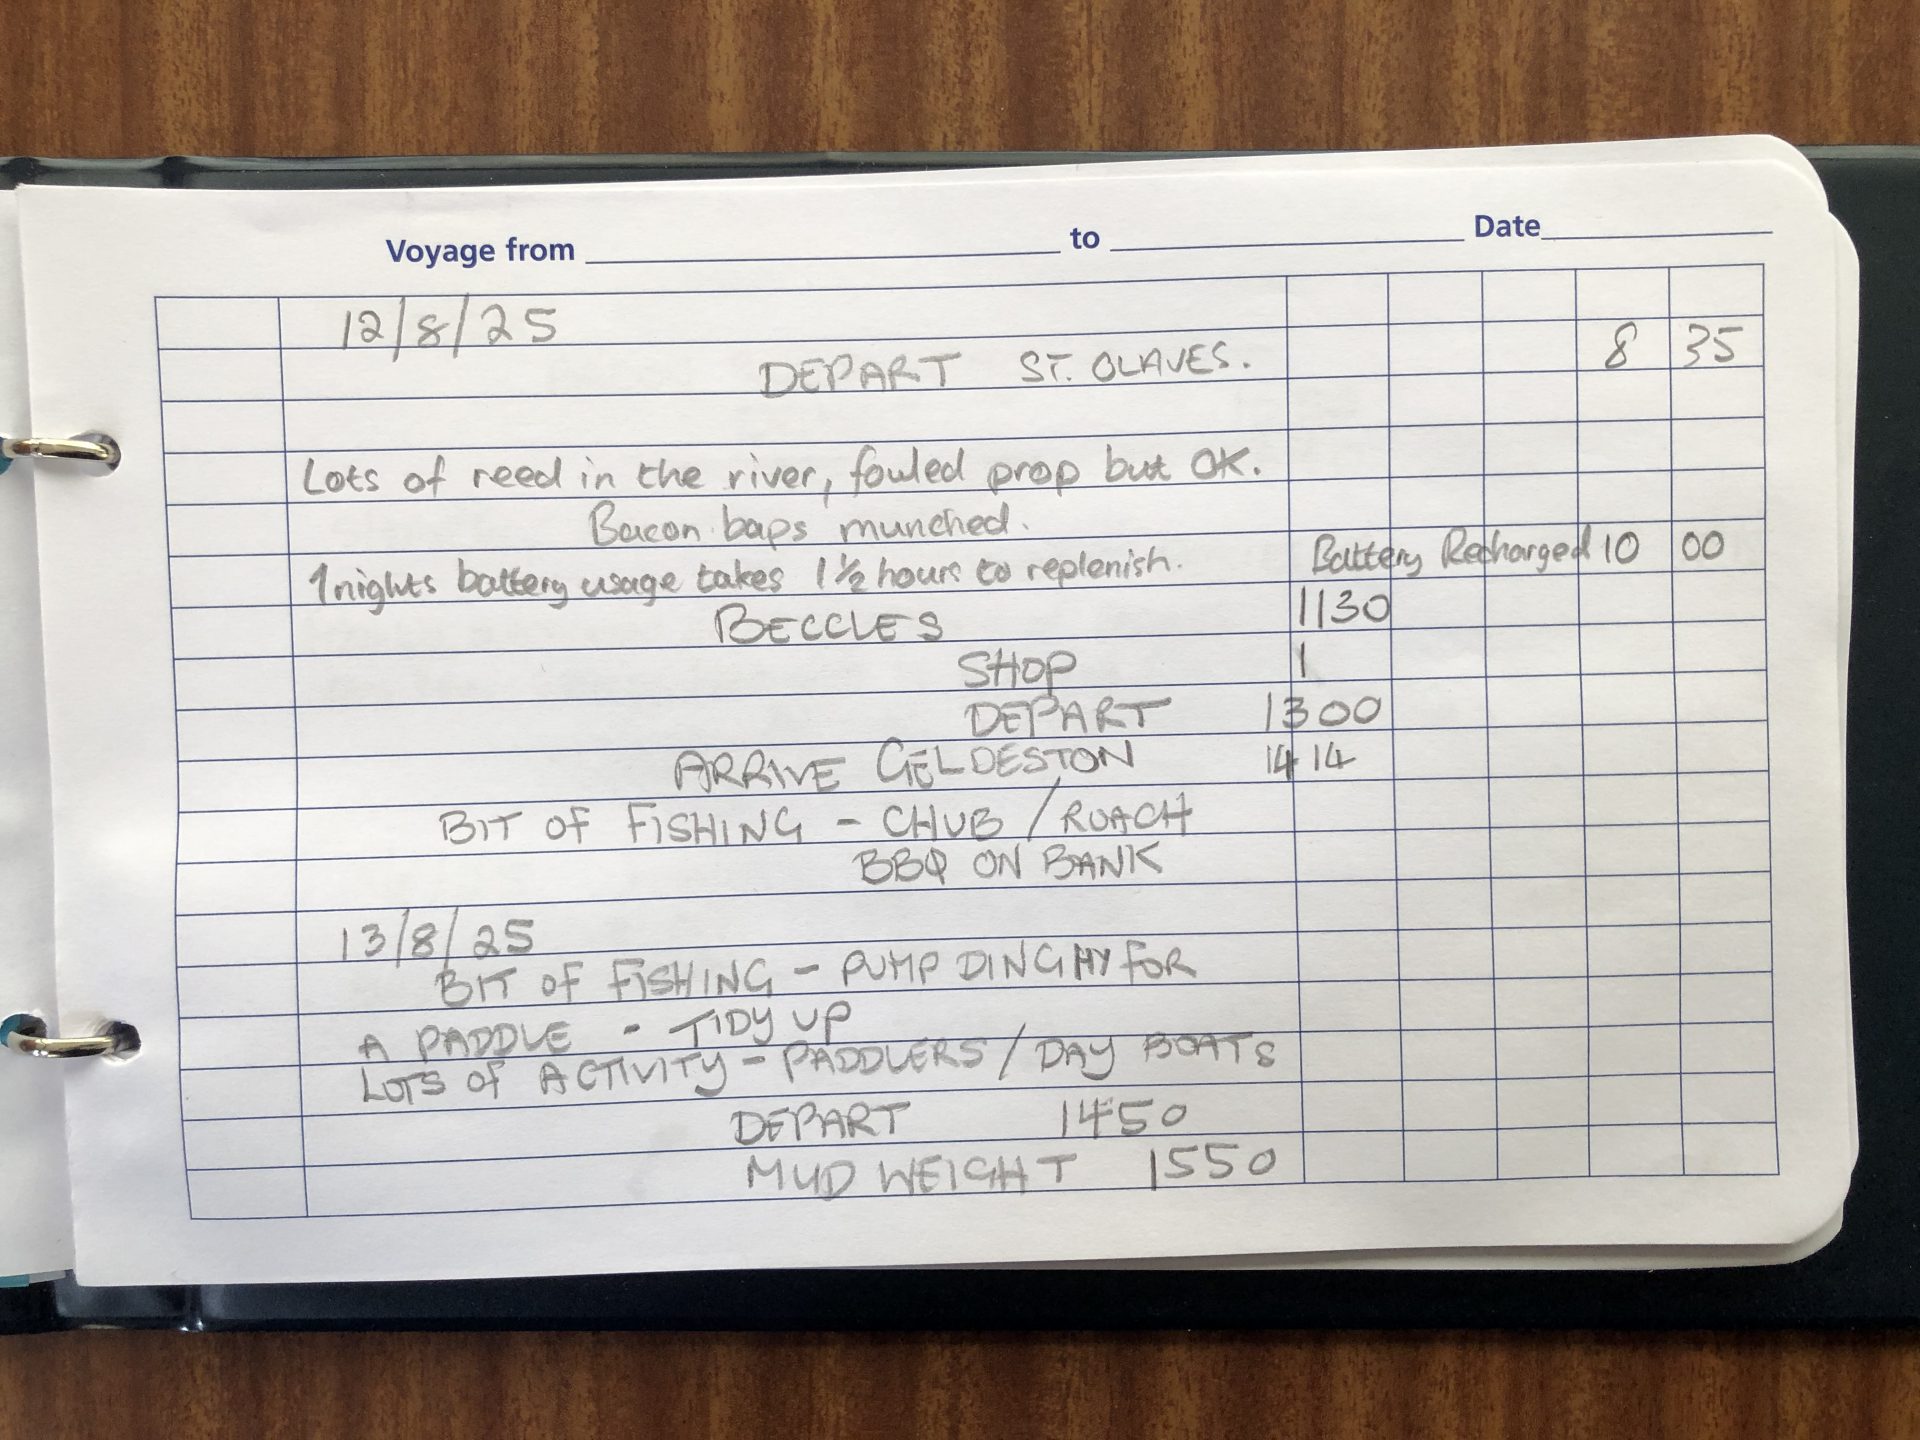 Voyage from to Date
12/8/25
DEPART ST. OLAVES. 8 35
Lots of reed in the river, fouled prop but OK.
Bacon baps munched.
1 nights battery usage takes 1½ hours to replenish. Battery Recharged 10 00
BECCLES 1130
SHOP 1
DEPART 1300
ARRIVE GELDESTON 1414
BIT OF FISHING - CHUB / ROACH
BBQ ON BANK
13/8/25
BIT OF FISHING - PUMP DINGHY FOR
A PADDLE - TIDY UP
LOTS OF ACTIVITY - PADDLERS / DAY BOATS
DEPART 1450
MUD WEIGHT 1550